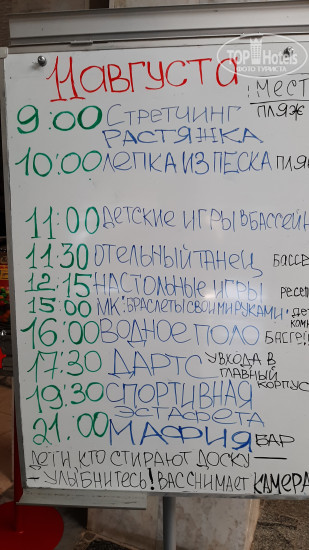 TOP Hotels
ФОТО ТУРИСТА
11 АВГУСТА
! МЕСТ
9:00 СТРЕТЧИНГ ПЛЯЖ
РАСТЯЖКА
10:00 ЛЕПКА ИЗ ПЕСКА ПЛЯ
11:00 ДЕТСКИЕ ИГРЫ В БАССЕЙН
11:30 ОТЕЛЬНЫЙ ТАНЕЦ БАССЕ
12:15 НАСТОЛЬНЫЕ ИГРЫ РЕСЕП
15:00 МК: БРАСЛЕТЫ СВОИМИ РУКАМИ ДЕТ
КОМН
16:00 ВОДНОЕ ПОЛО БАССЕЙ
17:30 ДАРТС У ВХОДА В
ГЛАВНЫЙ
КОРПУС
19:30 СПОРТИВНАЯ
ЭСТАФЕТА
21:00 МАФИЯ БАР
ДЕТИ, КТО СТИРАЮТ ДОСКУ —
— УЛЫБНИТЕСЬ! ВАС СНИМАЕТ КАМЕРА